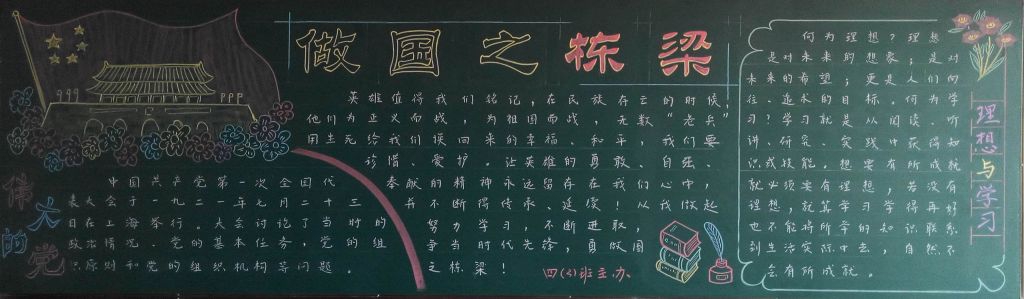 做国之栋梁
伟大的党
中国共产党第一次全国代
表大会于一九二一年七月二十三
日在上海举行。大会讨论了当时的
政治情况、党的基本任务，党的组
织原则和党的组织机构等问题。
英雄值得我们铭记，在民族存亡的时候！
他们为正义而战，为祖国而战，无数“老兵”
用生死给我们换回来的幸福、和平，我们要
珍惜、爱护。让英雄的勇敢、自强、
奉献的精神永远留存在我们心中，
并不断得传承、延续！从我做起
努力学习，不断进取，
争当时代先锋，勇做国
之栋梁！
四(3)班主办
理想与学习
何为理想？理想
是对未来的想象；是对
未来的希望；更是人们向
往、追求的目标。何为学
习？学习就是从阅读、听
讲、研究、实践中获得知
识或技能。想要有所成就
就必须要有理想，若没有
理想，就算学习学得再好
也不能将所学的知识联系
到生活实际中去，自然不
会有所成就。